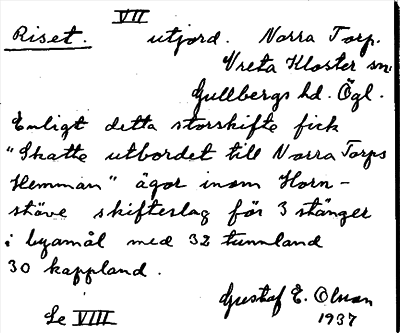 VII
Riset. utjord. Norra Torp.
Vreta Kloster sn.
Gullbergs hd. Ögl.
Enligt detta storskifte fick
"Skatte utbordet till Norra Torps
Hemman" ägor inom Horn-
stäve skifteslag för 3 stänger
i byamål med 32 tunnland
30 kappland.
Gustaf E. Olson
1937
Se VIII